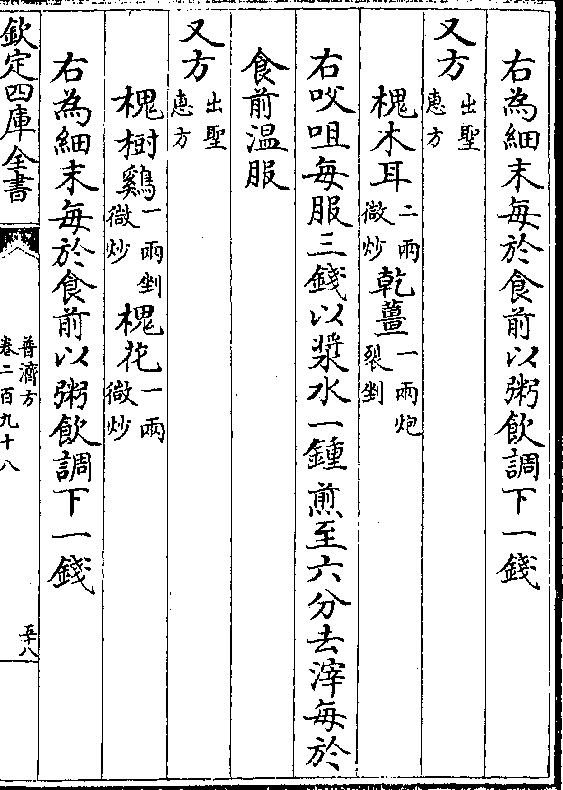 右為細末每於食前以粥飲調下一錢
又方出聖惠方
槐木耳二兩微炒乾薑一兩炮裂剉
右㕮咀每服三錢以漿水一鍾煎至六分去滓每於
食前温服
又方出聖惠方
槐樹鷄一兩剉微炒槐花一兩微炒
右為細末每於食前以粥飲調下一錢
欽定四庫全書
普濟方
卷二百九十八
五十八